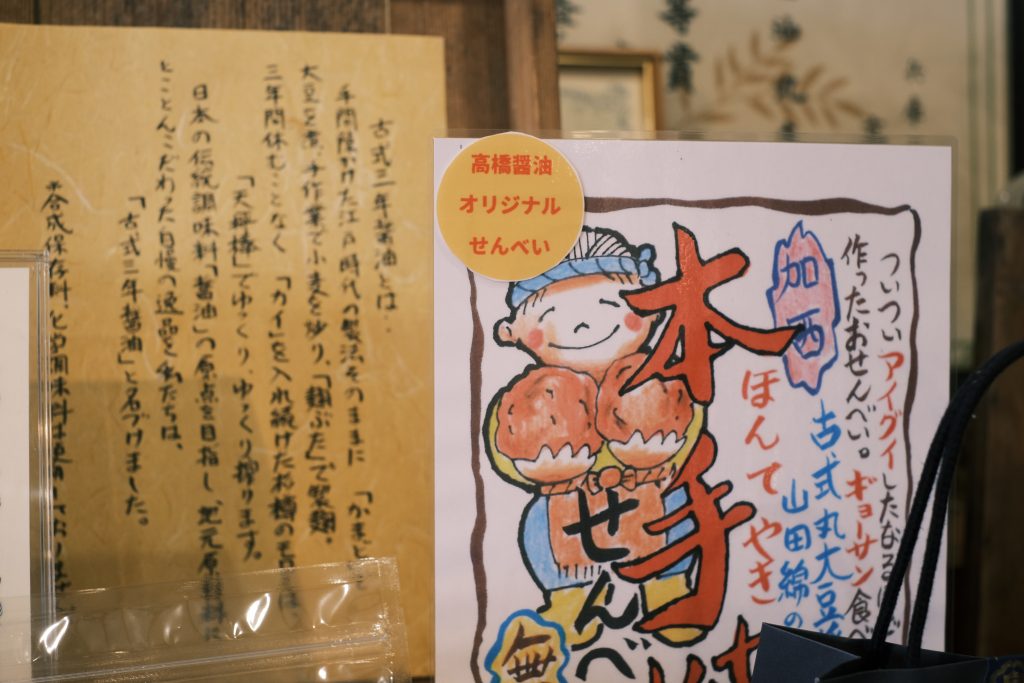 古式三年醤油とは‥
手間隙かけた江戸時代の製法そのままに「かまど」
大豆を煮、手作業で小麦を炒り、「麹ぶた」で製麹。
三年間休むことなく「カイ」を入れ続けたお樽の
「天秤棒」でゆっくり、ゆっくり搾ります。
日本の伝統調味料「醤油」の原点を目指し、地元原材料に
とことんこだわった自慢の逸品を私たちは、
「古式三年醤油」と名づけました。
合成保存料や調味料は使用しておりません
高橋醤油
オリジナル
せんべい
ついついアイグイしたなる
作ったおせんべい。ギョーサン食べ
加西
古式丸大豆
山田錦の
ほんてやき
本手
せんべ
無